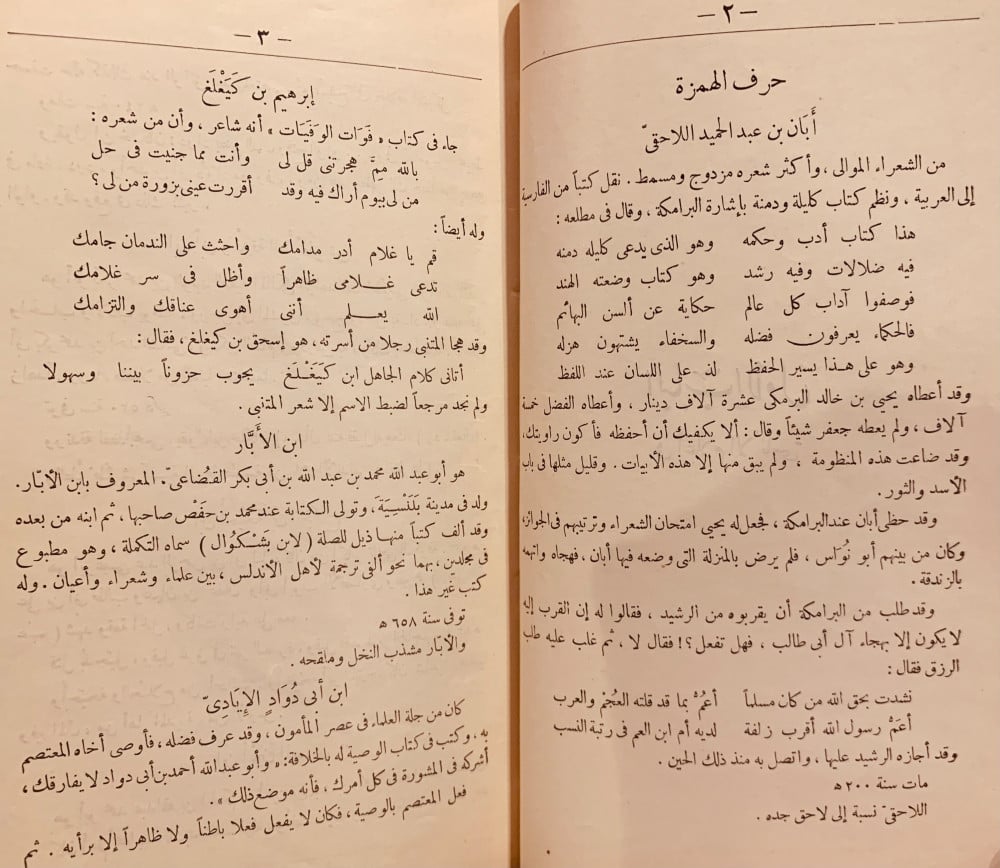 — ٢ —
حرف الهمزة
أَبَان بن عبد الحميد اللاحقىّ
من الشعراء الموالى ، وأكثر شعره مزدوج ومسمط . نقل كتباً من الفارسية
إلى العربية ، ونظم كتاب كليلة ودمنة بإشارة البرامكة ، وقال فى مطلعه :
هذا كتاب أدب وحكمه وهو الذى يدعى كليله دمنه
فيه ضلالات وفيه رشد وهو كتاب وضعته الهند
فوصفوا آداب كل عالم حكاية عن ألسن البهائم
فالحكماء يعرفون فضله والسخفاء يشتهون هزله
وهو على هذا يسير الحفظ لذ على اللسان عند اللفظ
وقد أعطاه يحيى بن خالد البرمكى عشرة آلاف دينار ، وأعطاه الفضل خمسة
آلاف ، ولم يعطه جعفر شيئاً وقال : ألا يكفيك أن أحفظه فأكون راويتك ،
وقد ضاعت هذه المنظومة ، ولم يبق منها إلا هذه الأبيات . وقليل مثلها فى باب
الأسد والثور .
وقد حظى أبان عند البرامكة ، فجعل له يحيى امتحان الشعراء وترتيبهم فى الجوائز،
وكان من بينهم أبو نُوَاس ، فلم يرض بالمنزلة التى وضعه فيها أبان ، فهجاه واتهمه
بالزندقة .
وقد طلب من البرامكة أن يقربوه من الرشيد ، فقالوا له إن القرب إليه
لا يكون إلا بهجاء آل أبى طالب ، فهل تفعل ؟! فقال لا ، ثم غلب عليه طلب
الرزق فقال :
نشدت بحق الله من كان مسلماً أعُمُّ بما قد قلته العُجْم والعرب
أعَمُّ رسول الله أقرب زلفة لديه أم ابن العم فى رتبة النسب
وقد أجازه الرشيد عليها ، واتصل به منذ ذلك الحين .
مات سنة ٢٠٠ ه
اللاحقىّ نسبة إلى لاحق جده .
— ٣ —
إبرهيم بن كَيَغْلَغ
جاء فى كتاب « فَوَات الوَفَيَات » أنه شاعر ، وأن من شعره :
بالله مِمَّ هجرتنى قل لى وأنت مما جنيت فى حل
من لى بيوم أراك فيه وقد أقررت عينى بزورة من لى ؟
وله أيضاً :
قم يا غلام أدر مدامك واحثث على الندمان جامك
تدعى غلامى ظاهراً وأظل فى سر غلامك
الله يعلم أننى أهوى عناقك والتزامك
وقد هجا المتنبى رجلا من أسرته ، هو إسحق بن كيغلغ ، فقال :
أتانى كلام الجاهل ابن كَيَغْلَغ يجوب حزوناً بيننا وسهولا
ولم نجد مرجعاً لضبط الاسم إلا شعر المتنبى .
ابن الأَبَّار
هو أبو عبد الله محمد بن عبد الله بن أبى بكر القُضَاعىّ . المعروف بابن الأبّار .
ولد فى مدينة بَلَنْسِيَة ، وتولى الكتابة عند محمد بن حَفْص صاحبها ، ثم ابنه من بعده
وقد ألف كتباً منها ذيل للصلة ( لابن بَشْكُوَال ) سماه التكملة ، وهو مطبوع
فى مجلدين ، بهما نحو ألفى ترجمة لأهل الأندلس ، بين علماء وشعراء وأعيان . وله
كتب غير هذا .
توفى سنة ٦٥٨ ه
والأبّار مشذب النخل وملقحه .
ابن أبى دُوَادٍ الإيَادىّ
كان من جلة العلماء فى عصر المأمون ، وقد عرف فضله ، فأوصى أخاه المعتصم
به ، وكتب فى كتاب الوصية له بالخلافة : « وأبو عبد الله أحمد بن أبى دواد لا يفارقك ،
أشركه فى المشورة فى كل أمرك ، فأنه موضع ذلك » .
فعل المعتصم بالوصية ، فكان لا يفعل فعلا باطناً ولا ظاهراً إلا برأيه . ثم